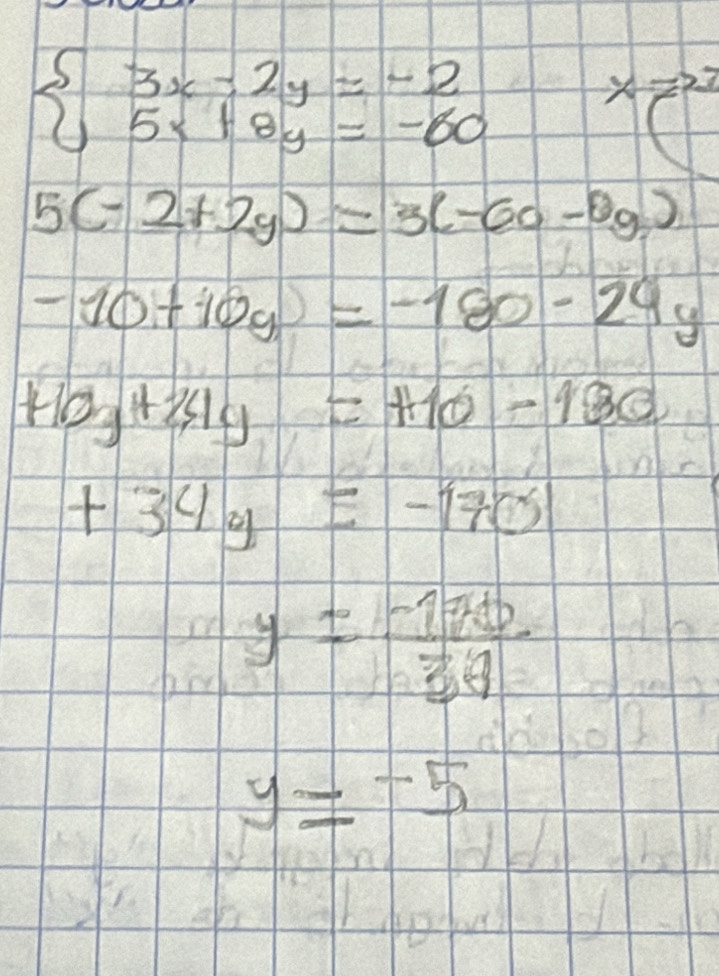 3x - 2y = -2
5x + 8y = -60
5(-2+2y) = 3(-60-8y)
-10+10y = -180-24y
+10y+24y = +10-180
+34y = -170
y = -170/34
y = -5